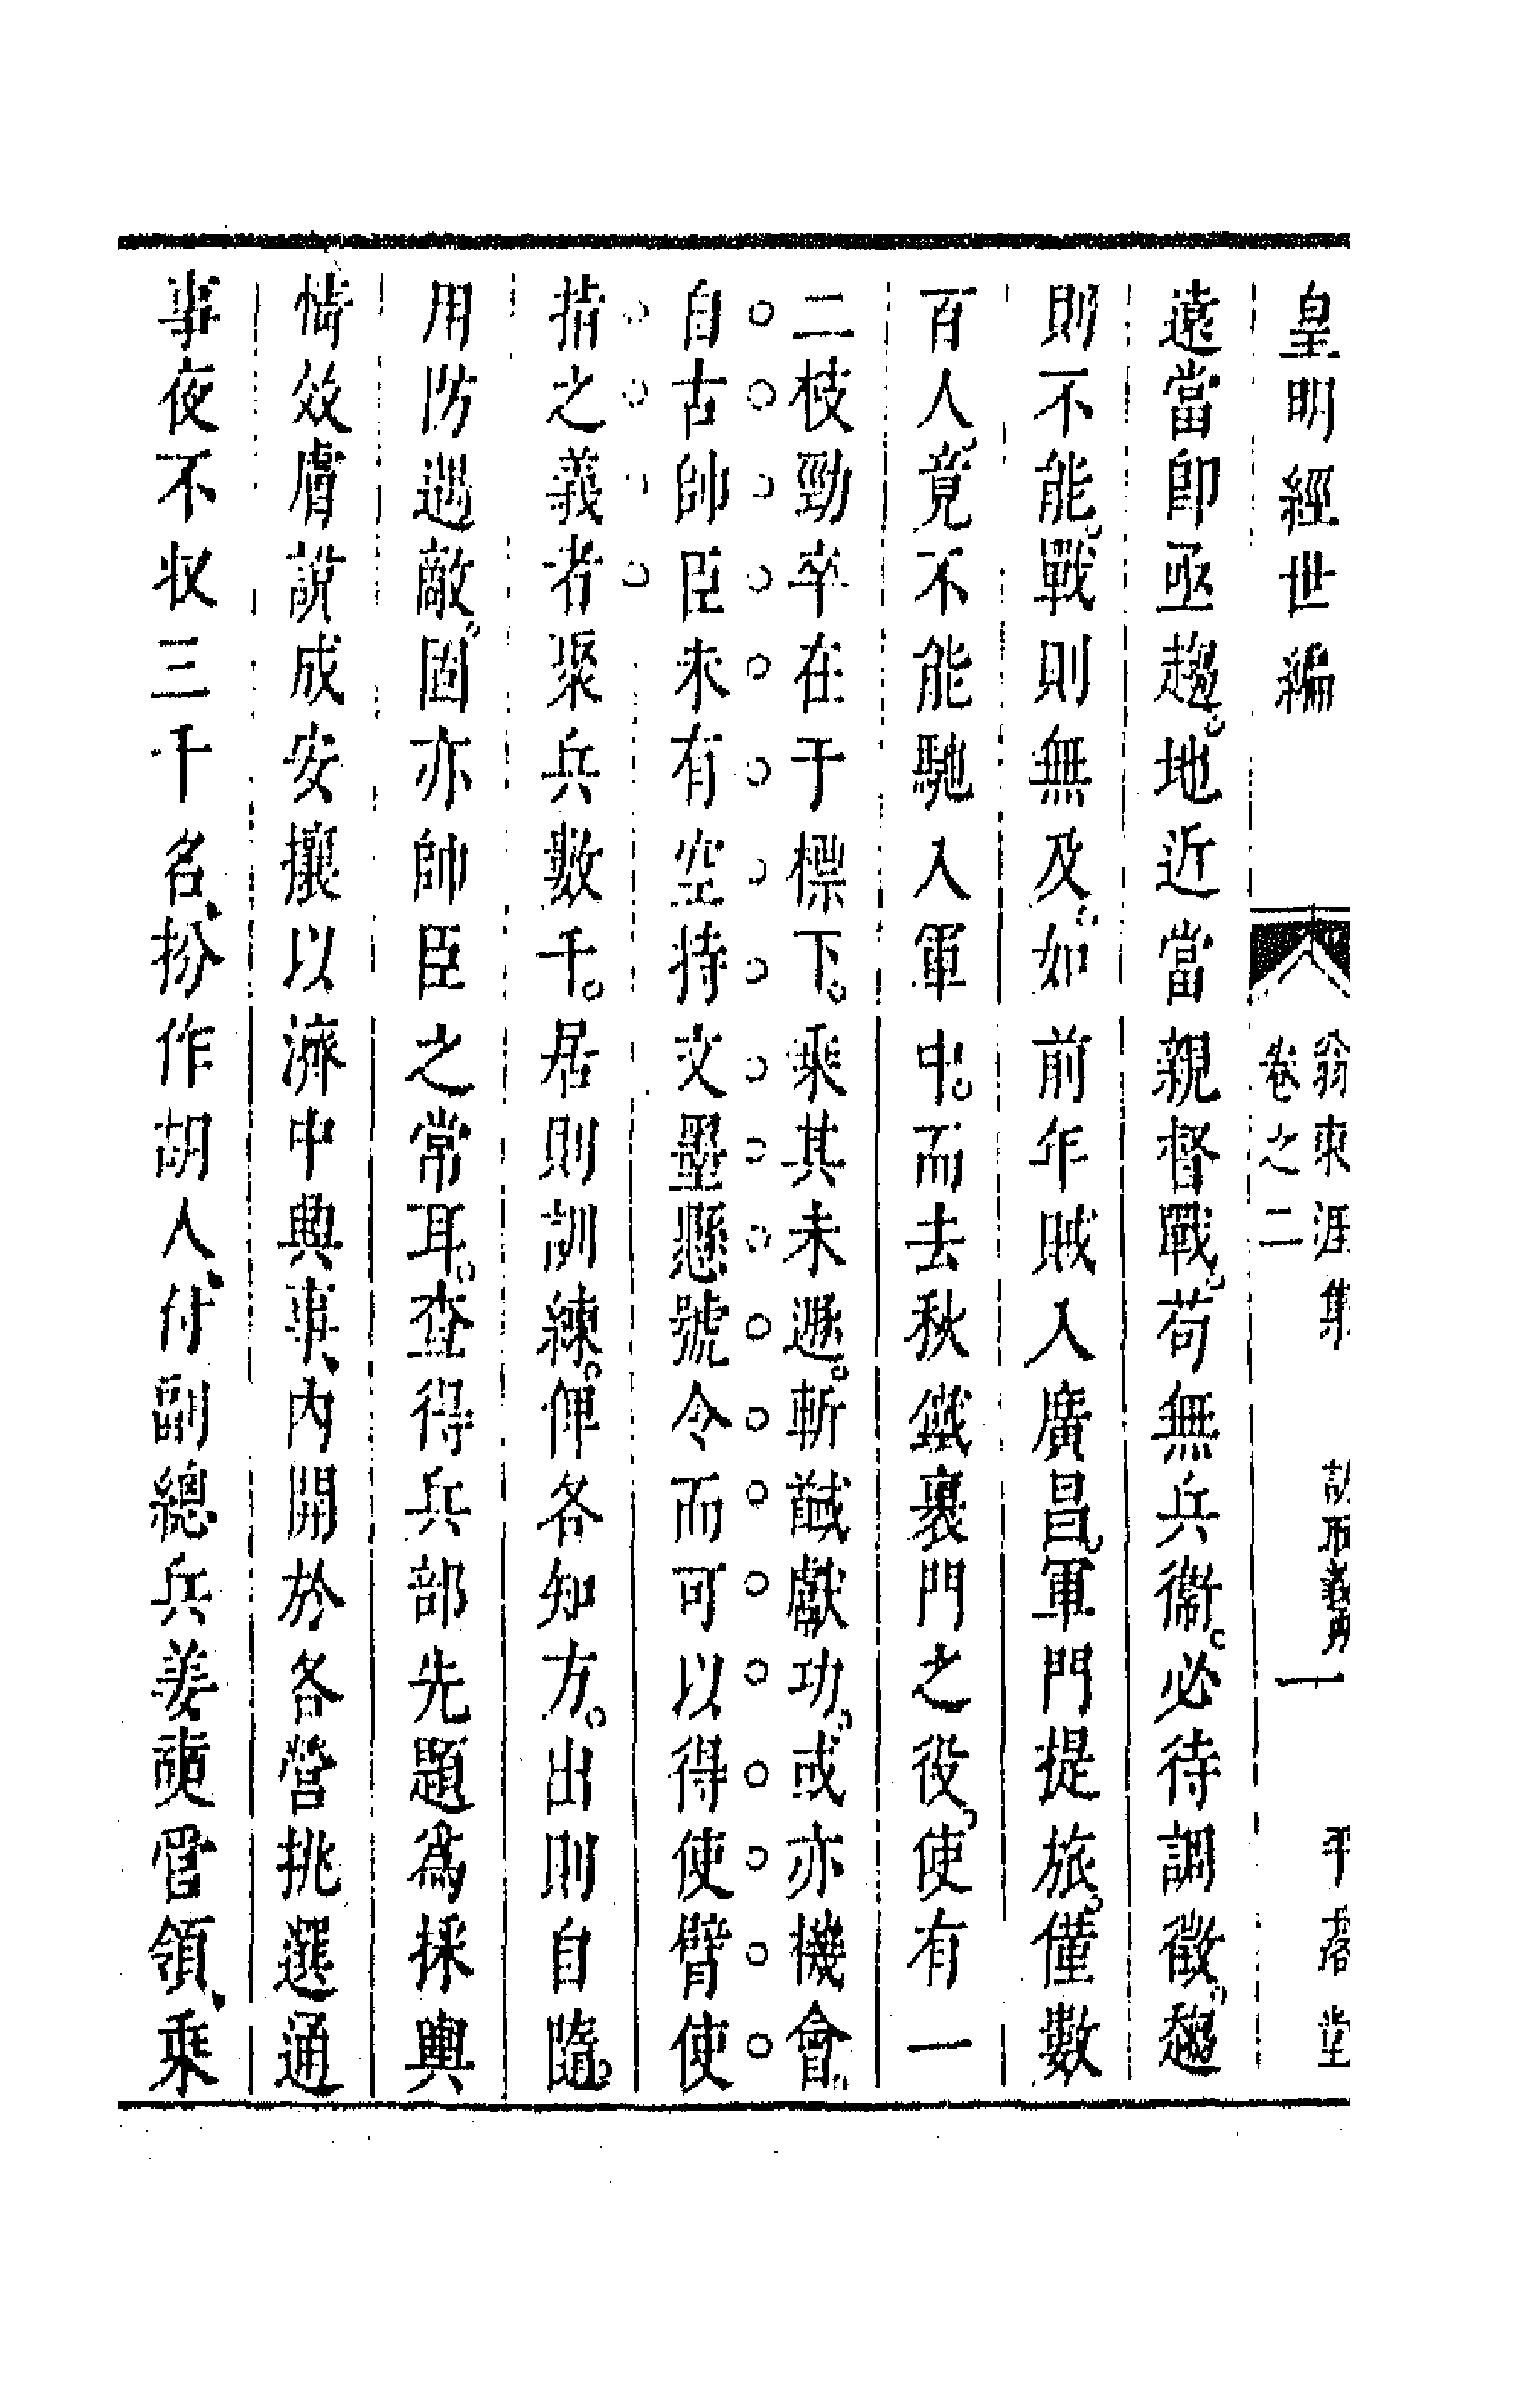 皇明經世編
翁東涯集
卷之二
一
平露堂
遠當即亟趨地近當親督戰苟無兵衞必待調徵趨
則不能戰則無及如前年賊入廣昌軍門提旅僅數
百人竟不能馳入軍中而去秋鐵裹門之役使有一
二枝勁卒在于標下乘其未遯斬馘獻功或亦機會
自古帥臣未有空持文墨懸號令而可以得使臂使
指之義者聚兵數千居則訓練俾各知方出則自隨
用防遇敵固亦帥臣之常耳查得兵部先題為採輿
情效膚說成安攘以濟中興事內開於各營挑選通
事夜不收三千名扮作胡人付副總兵姜奭管領乘